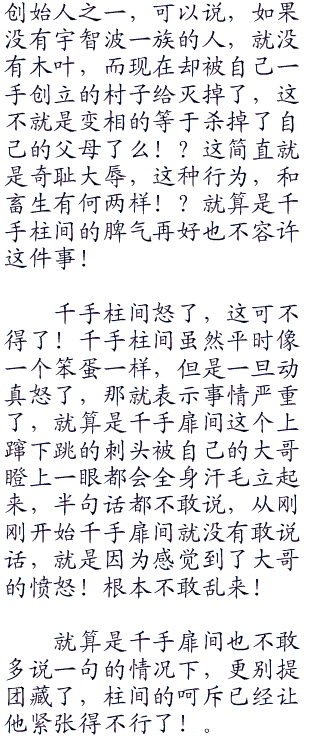 创始人之一，可以说，如果
没有宇智波一族的人，就没
有木叶，而现在却被自己一
手创立的村子给灭掉了，这
不就是变相的等于杀掉了自
己的父母了么！？这简直就
是奇耻大辱，这种行为，和
畜生有何两样！？就算是千
手柱间的脾气再好也不容许
这件事！
千手柱间怒了，这可不
得了！千手柱间虽然平时像
一个笨蛋一样，但是一旦动
真怒了，那就表示事情严重
了，就算是千手扉间这个上
蹿下跳的刺头被自己的大哥
瞪上一眼都会全身汗毛立起
来，半句话都不敢说，从刚
刚开始千手扉间就没有敢说
话，就是因为感觉到了大哥
的愤怒！根本不敢乱来！
就算是千手扉间也不敢
多说一句的情况下，更别提
团藏了，柱间的呵斥已经让
他紧张得不行了！。